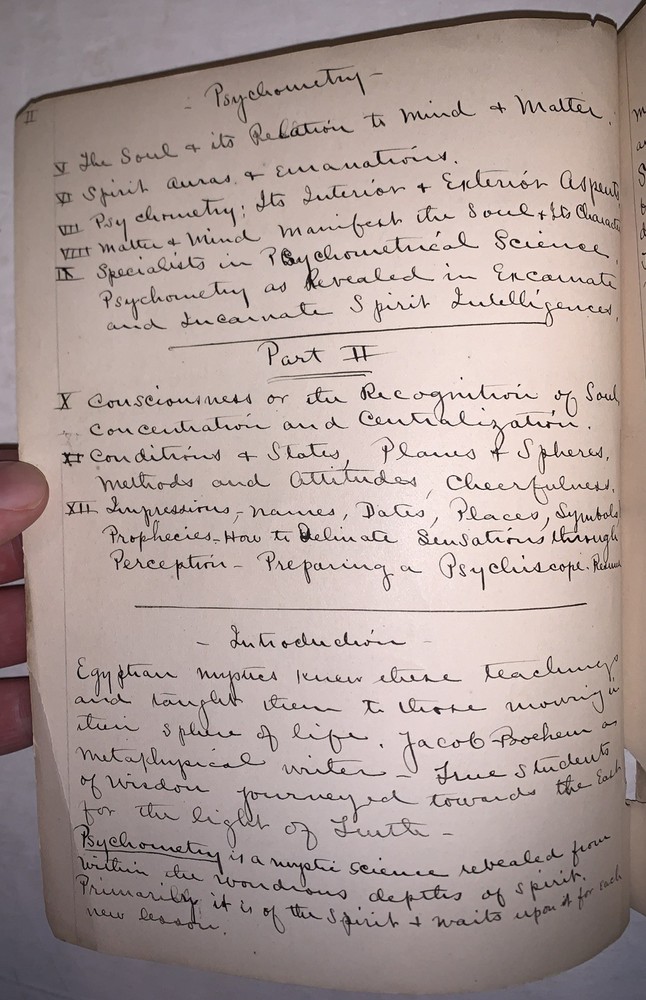 II
- Psychometry -
V The Soul & its Relation to Mind & Matter.
VI Spirit auras & emanations.
VII Psychometry; Its Interior & Exterior Aspects
VIII Matter & Mind manifest the Soul & Its Characte
IX Specialists in Psychometrical Science,
Psychometry as Revealed in Excarnate
and Incarnate Spirit Intelligences.
Part II
X Consciousness or the Recognition of Soul,
Concentration and Centralization.
XI Conditions & States, Planes & Spheres,
Methods and Attitudes, Cheerfulness.
XII Impressions, - names, Dates, Places, Symbols
Prophecies - How to Deliniate Sensations through
Perception - Preparing a Psychiscope.
- Introduction -
Egyptian mystics knew these teachings
and taught them to those moving in
their sphere of life. Jacob Boehem as
metaphysical writer - True Students
of Wisdom journeyed towards the East
for the light of Truth -
Psychometry is a mystic science revealed from
within the wondrous depths of Spirit.
Primarily it is of the Spirit & waits upon it for each
new lesson.